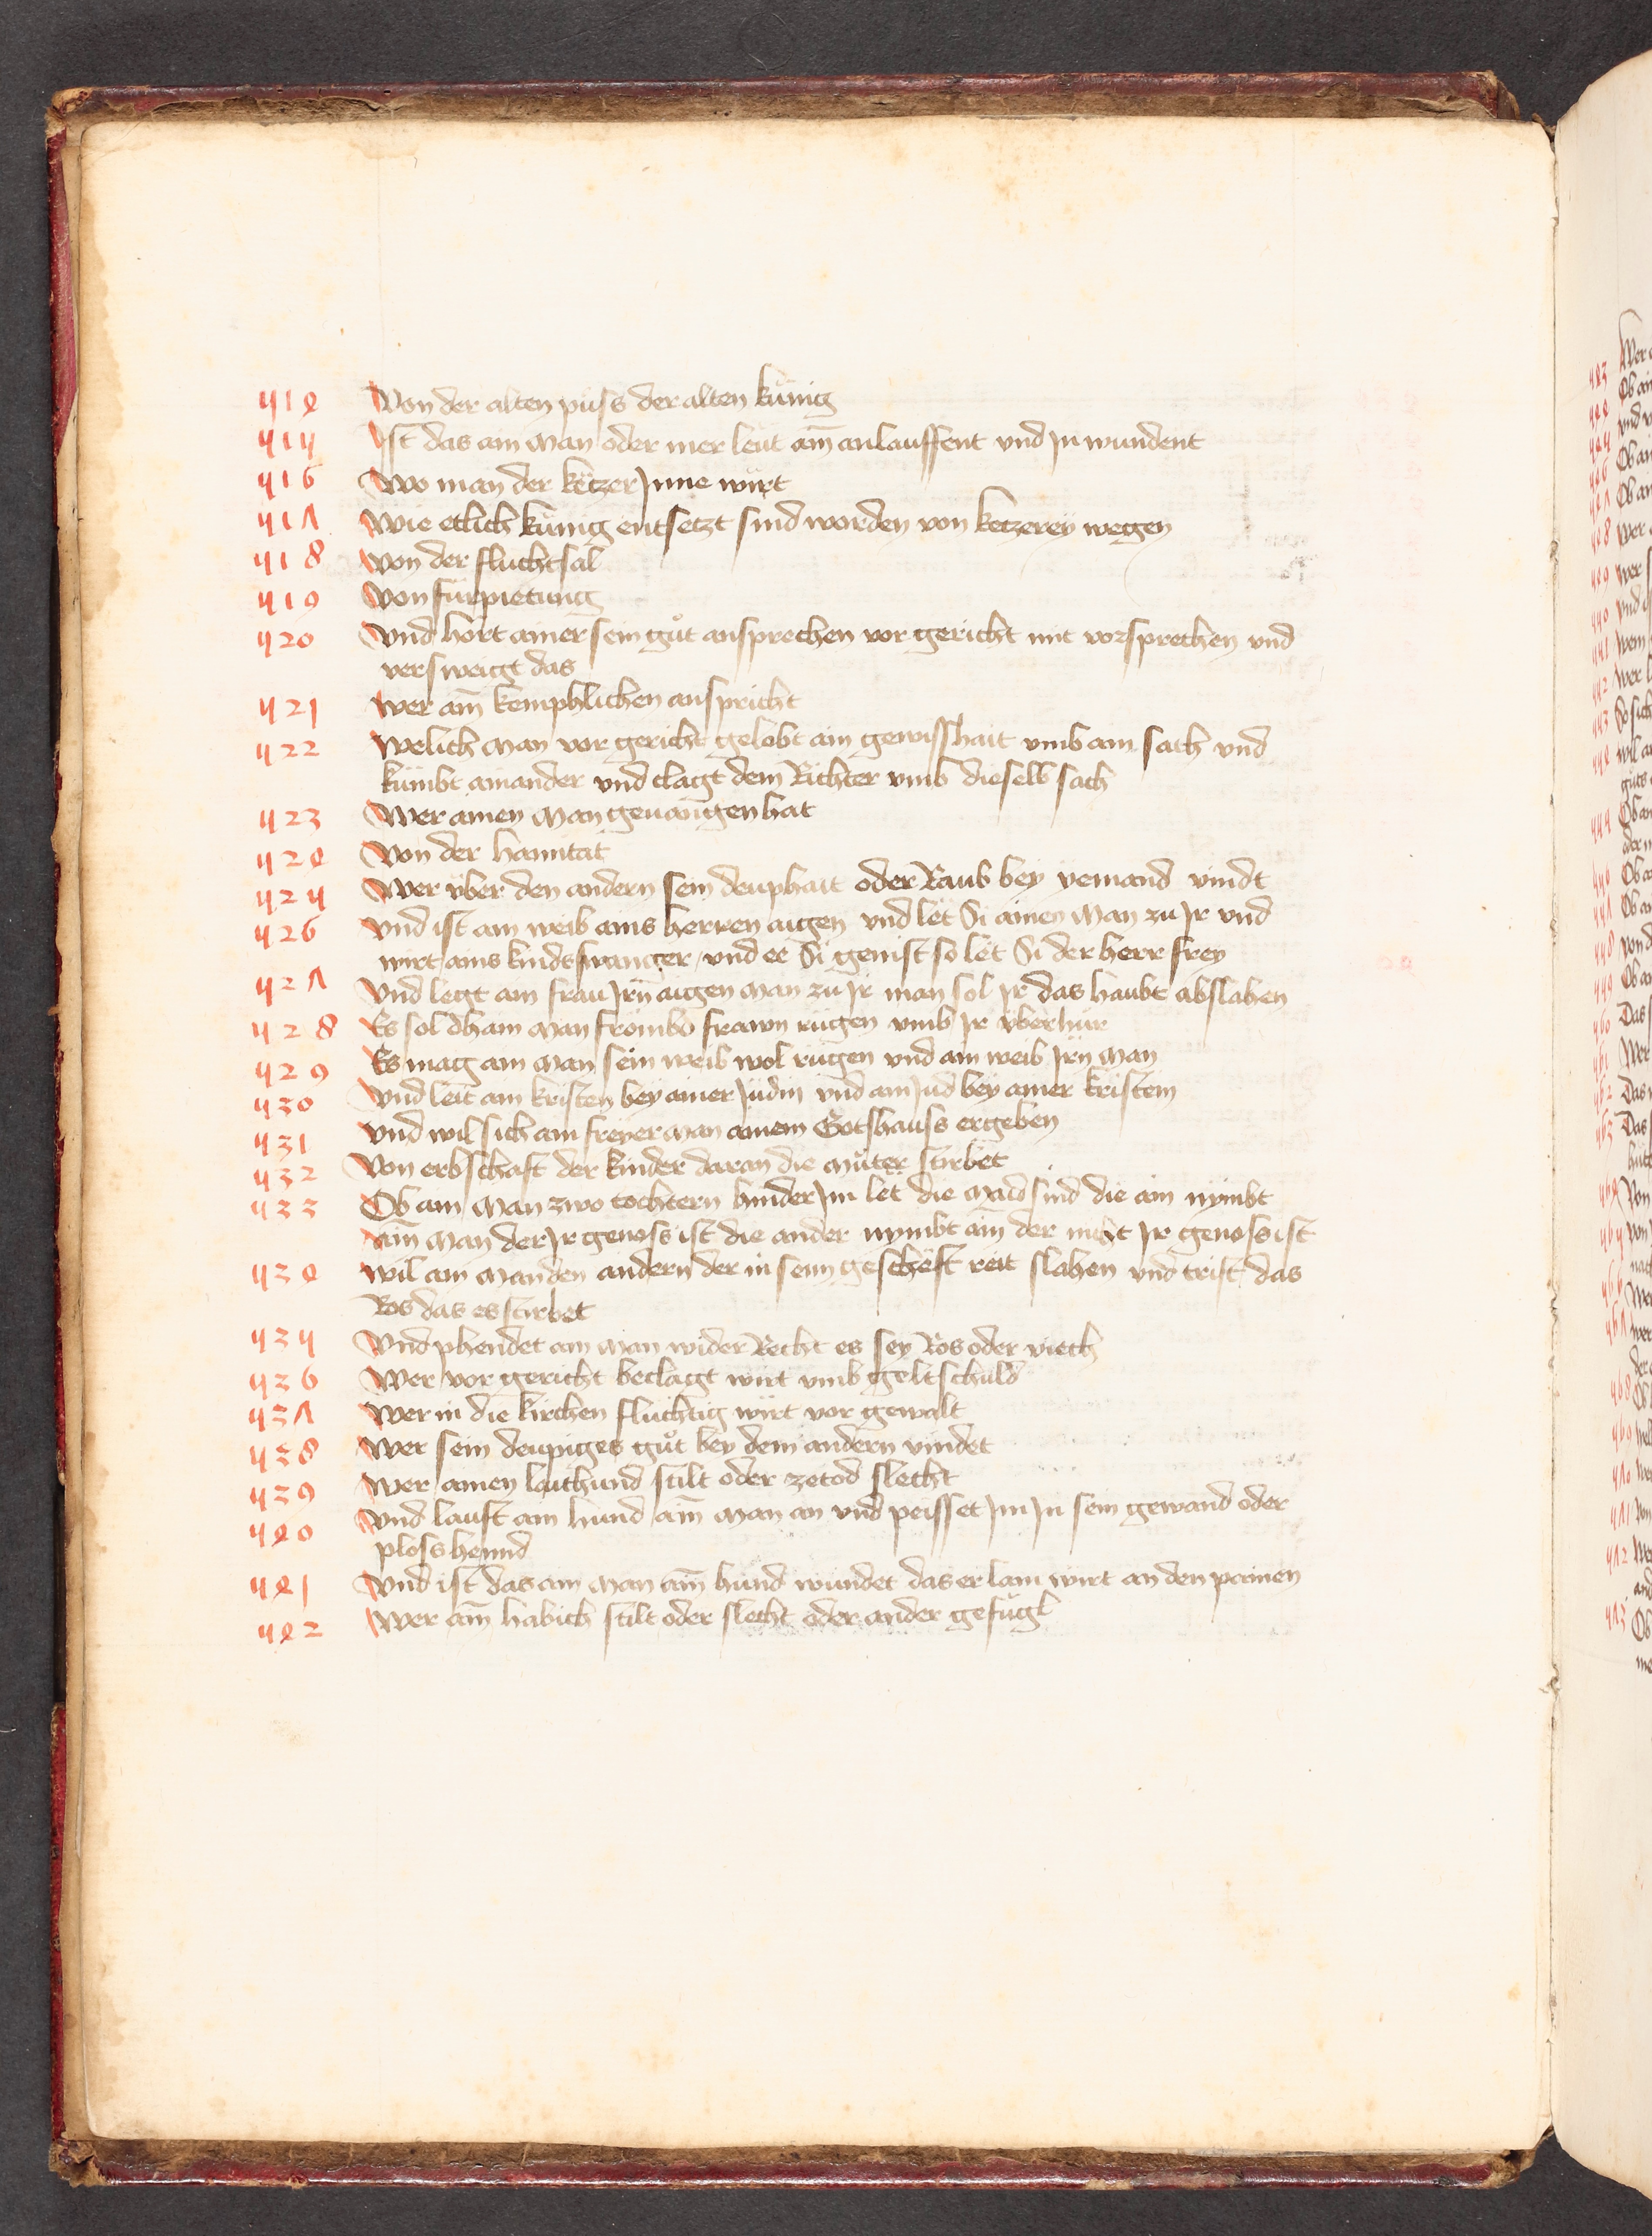 514 Von der alten puss der alten künig
515 Ist das ain Man oder mer leüt ain̄ anlauffent vnd Jn wundent
516 Wo man der ketzer Jnne wirt
517 Wie etlich künig entsetzt sind worden von ketzerey wegen
518 Von der fluchtsal
519 Von fürpietung
520 Vnd hört ainer sein gůt ansprechen vor gericht mit vorsprechen vnd
versweigt das
521 Wer ain̄ kemphlichen anspricht
522 Welich Man vor gericht gelobt ain gewisshait vmb ain sach vnd
kümbt ainander vnd clagt dem Richter vmb dieselb sach
523 Wer ainen Man geuangen hat
524 Von der hanntat
525 Wer vber den andern sein deuphait oder Raub bey yemand vindt
526 Vnd ist ain weib ains herren aigen vnd lët Si ainen Man zu Jr vnd
wirt ains kinds swanger vnd ee Si genist so lët Si der herr frey
527 Vnd legt ain frau Jrn̄ aigen Man zu Jr man sol Jr das haubt abslahen
528 Es sol dhain Man frömbd frawn rügen vmb Jr vberhur
529 Es mag ain Man sein weib wol rügen vnd ain weib Jrn̄ Man
530 Vnd leit ain kristen bey ainer Jüdin vnd ain Jud bey ainer kristein
531 Vnd wil sich ain freyer Man ainem Gotshauss ergeben
532 Von erbschaft der kinder daran die Můter stirbet
533 Ob ain Man zwo tochtern hinder Jm lët die Maid sind die ain nymbt
ain̄ Man der Jr genoss ist die ander nymbt ain̄ der nicht Jr genoss ist
534 Wil ain Man den andern der in seim geschëft reit slahen vnd trift das
Ros das es stirbet
535 Vnd phendet ain Man wider Recht es sey Ros oder viech
536 Wer vor gericht beclagt wirt vmb geltschuld
537 Wer in die kirchen fluchtig wirt vor gewalt
538 Wer sein deupiges gůt bey dem andern vindet
539 Wer ainen laithund stilt oder zetod slecht
540 Vnd lauft ain hund ain̄ Man an vnd peisset Jm Jn sein gewand oder
ploss hennd
541 Vnd ist das ain Man ain̄ hund wundet das er lam wirt an den painen
542 Wer ain̄ habich stilt oder slecht oder ander gefügl